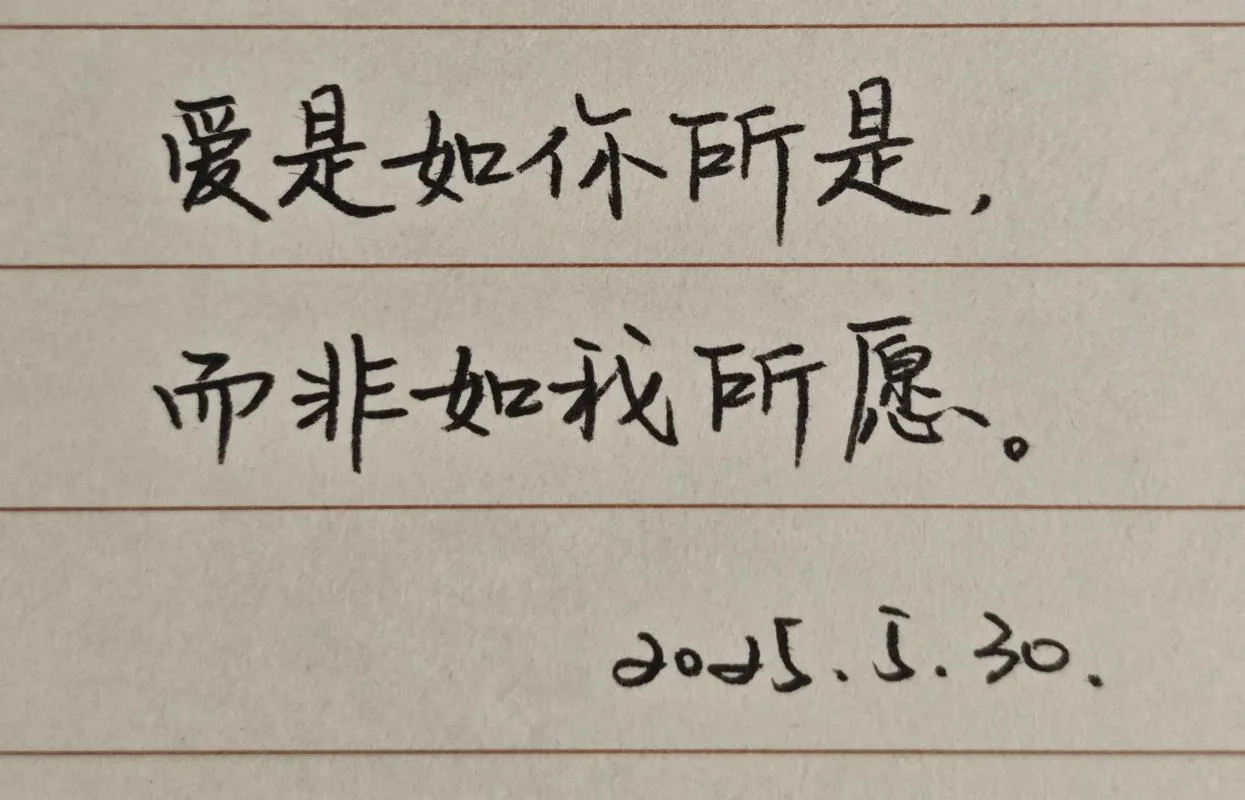 爱是如你所是，
而非如我所愿。
2025.5.30.